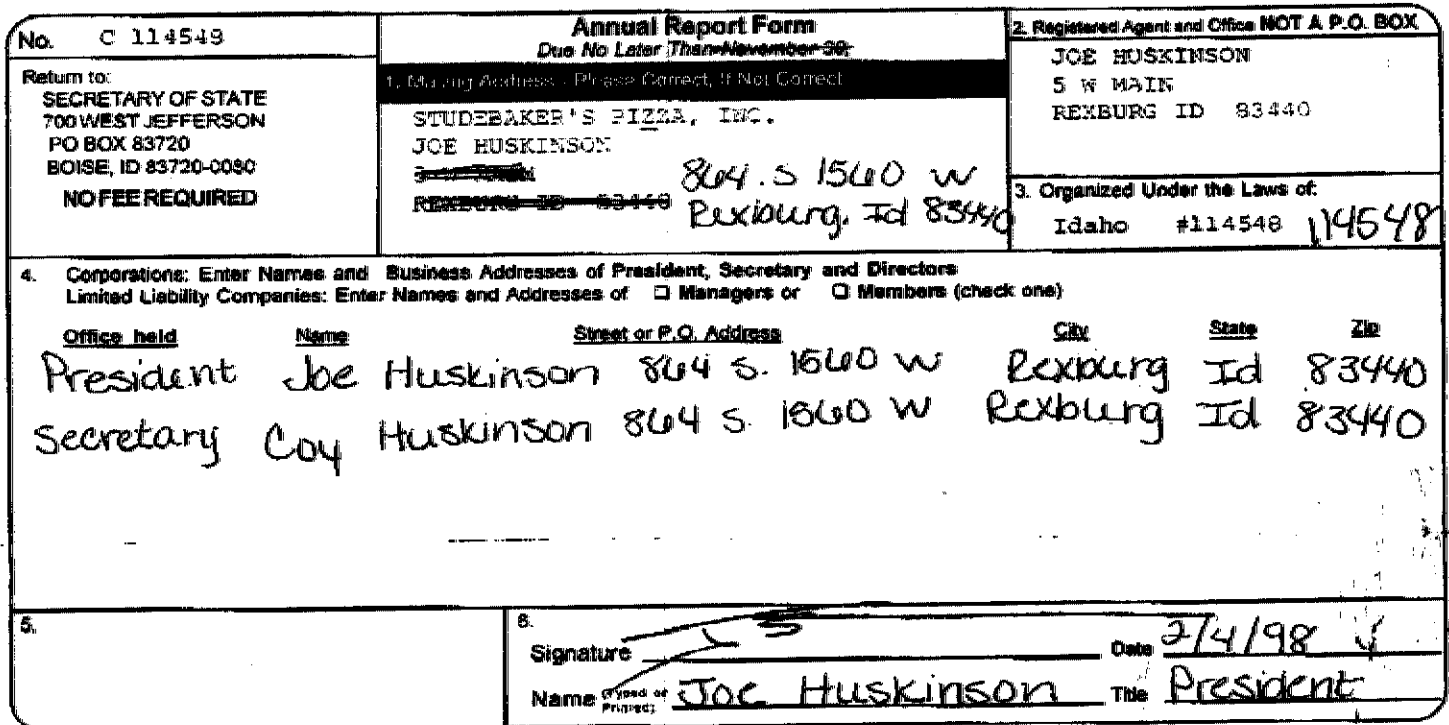 No. C 114548
Return to:
SECRETARY OF STATE
700 WEST JEFFERSON
PO BOX 83720
BOISE, ID 83720-0080
NO FEE REQUIRED
Annual Report Form
Due No Later Than November 30,
1. Mailing Address - Please Correct, If Not Correct
STUDEBAKER'S PIZZA, INC.
JOE HUSKINSON
REXBURG ID 83440
864 . S 1560 W
Rexburg, Id 83440
2. Registered Agent and Office NOT A P.O. BOX
JOE HUSKINSON
5 W MAIN
REXBURG ID 83440
3. Organized Under the Laws of:
Idaho #114548 114548
4. Corporations: Enter Names and Business Addresses of President, Secretary and Directors
Limited Liability Companies: Enter Names and Addresses of ☐ Managers or ☐ Members (check one)
Office held Name Street or P.O. Address City State Zip
President Joe Huskinson 864 S. 1560 W Rexburg Id 83440
Secretary Coy Huskinson 864 S. 1560 W Rexburg Id 83440
5.
6.
Signature Date 2/4/98
Name (Typed or Printed) Joe Huskinson Title President